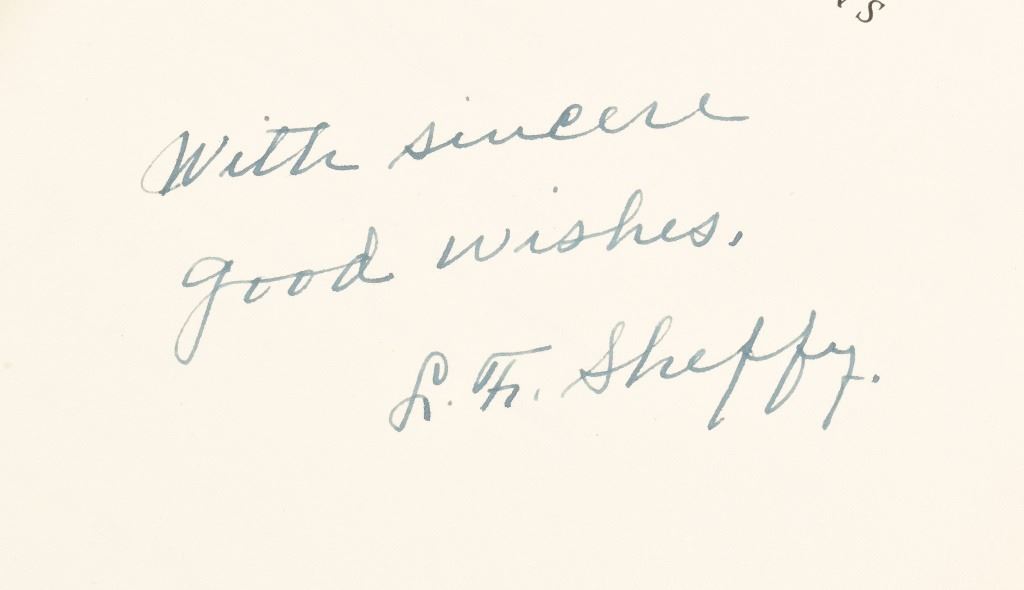 With sincere
good wishes.
L. F. Sheffy.